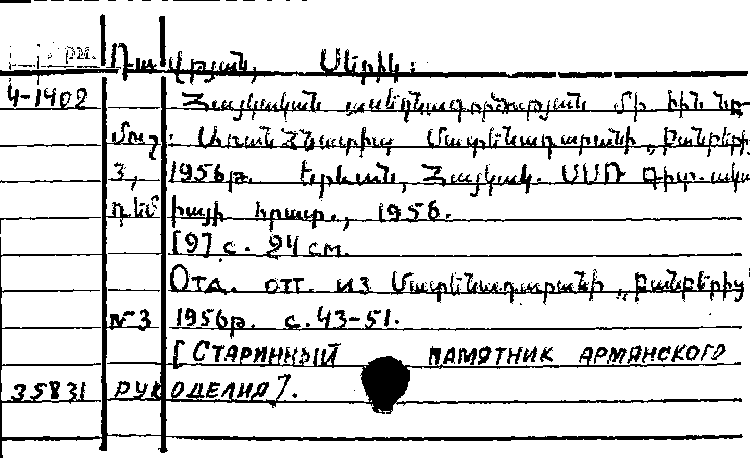 Арм.
Դավթյան, Սերիկ:
4-1402 Հայկական ասեղնագործության մի հին նը-
մուշ: Առանձնատիպ Մատենադարանի „Բանբերից"
3, 1956թ. Երևան, Հայկակ. ՍՍՌ Գիտ. ակա
դեմիայի հրատ., 1956.
[9] с. 24 см.
Отд. отт. из Մատենադարանի „Բանբերից"
№3 1956թ. с. 43-51.
[СТАРИННЫЙ ПАМЯТНИК АРМЯНСКОГО
35831 РУКОДЕЛИЯ].